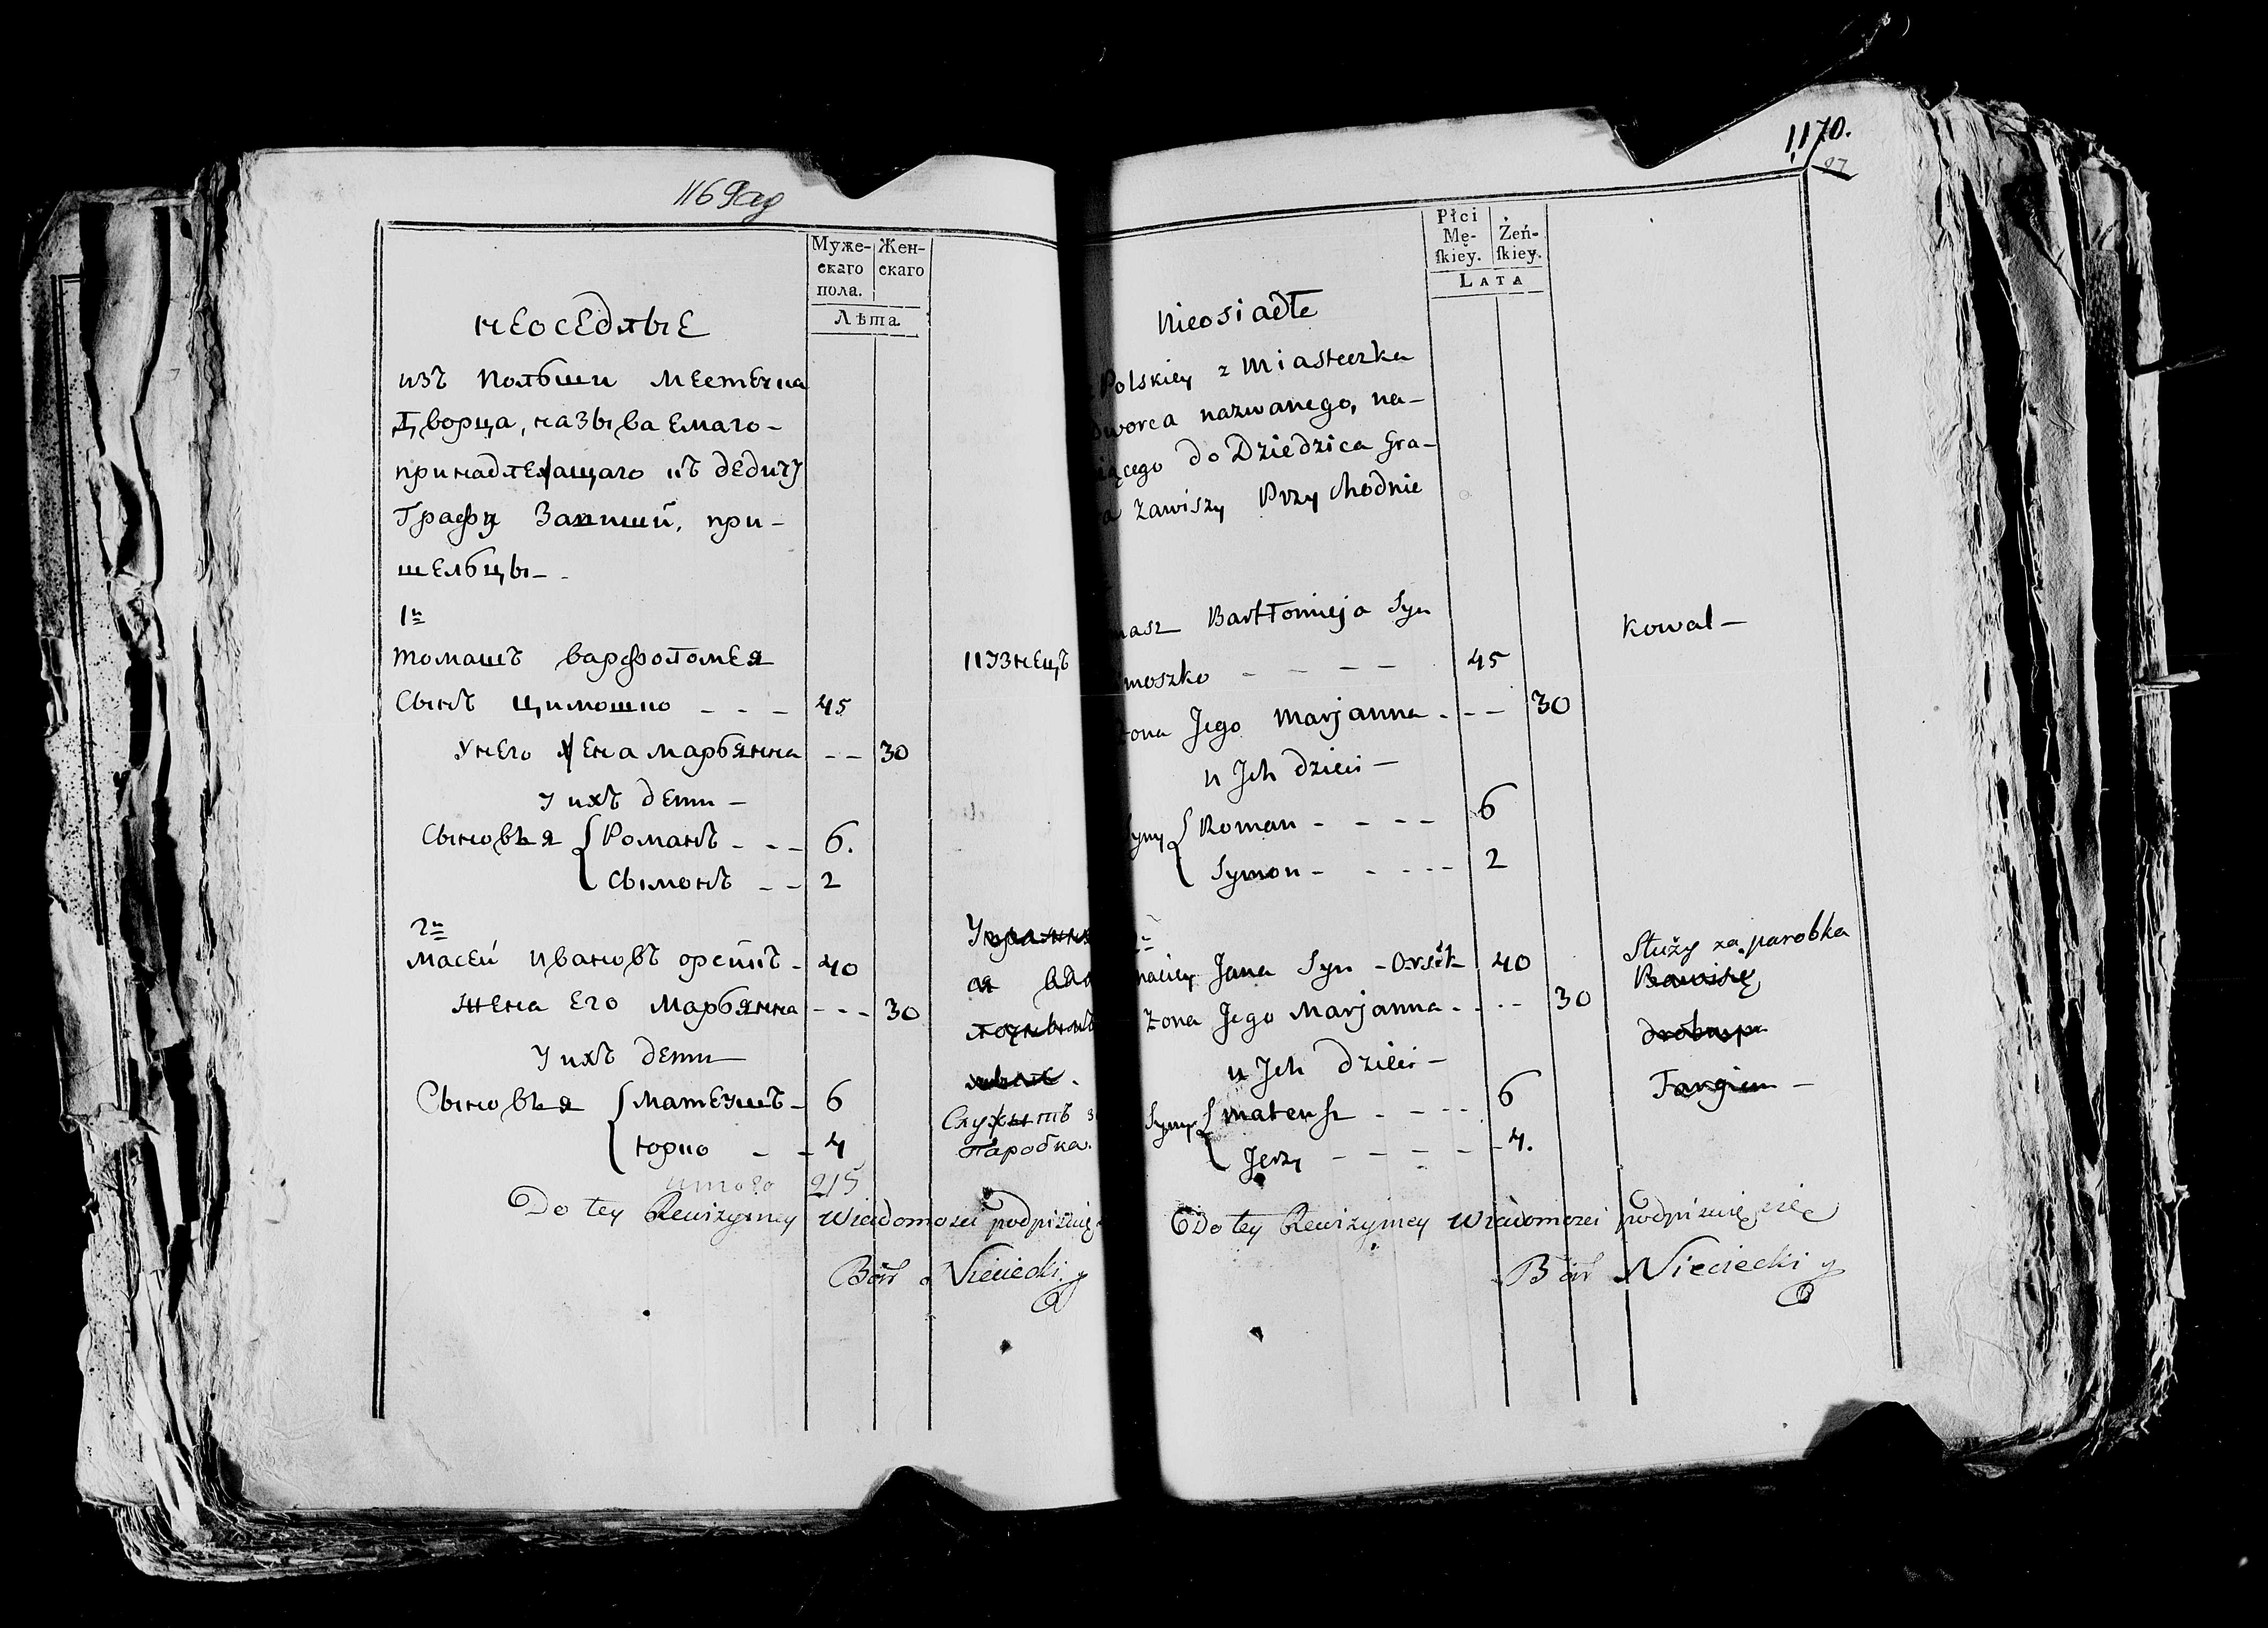 1169
Муже-
скаго
пола.
Жен-
скаго
Лѣта
неоседлые
изъ Польши местечка
Дворца, называемаго-
принадлежащаго къ дедичу
Графу Завишй, при-
шельцы-
1й
томашъ варфоломея
кузнецъ
сынъ цимошко - - - 45
унего жена марьянна -- 30
у ихъ дети -
сыновья { Романъ - - - 6.
Сымонъ - - 2
2й
масей ивановъ орсикъ - 40
жена его марьянна - - - 30
у ихъ дети
Сыновья { матеушъ - 6
Служытъ
юрко - - 4
Паробка.
итого 215
Do tey Rewizyiney Wiadomosci podpisuię
Bar Nieciecki
1170.
27
Płci
Mę-
ſkiey.
Żeń-
ſkiey.
LATA
Nieosiadłe
Polskiey z Miasteczka
dworca nazwanego, na-
iącego do Dziedzica Gra-
a Zawiszy Przychodnie
masz Bartłomieja Syn
Kowal -
moszko - - - - 45
żona Jego Marjanna - -- 30
u Jch dzieci -
Syny { Roman - - - - 6
Symon - - - - - 2
maciey Jana Syn - Orsik 40
Służy za parobka
Żona Jego Marjanna - - - - 30
u Jch dzieci -
Syny { mateusz - - - - 6
Jerzy - - - - - 4.
Do tey Rewizyiney Wiadomosci podpisuię się
Bar Nieciecki